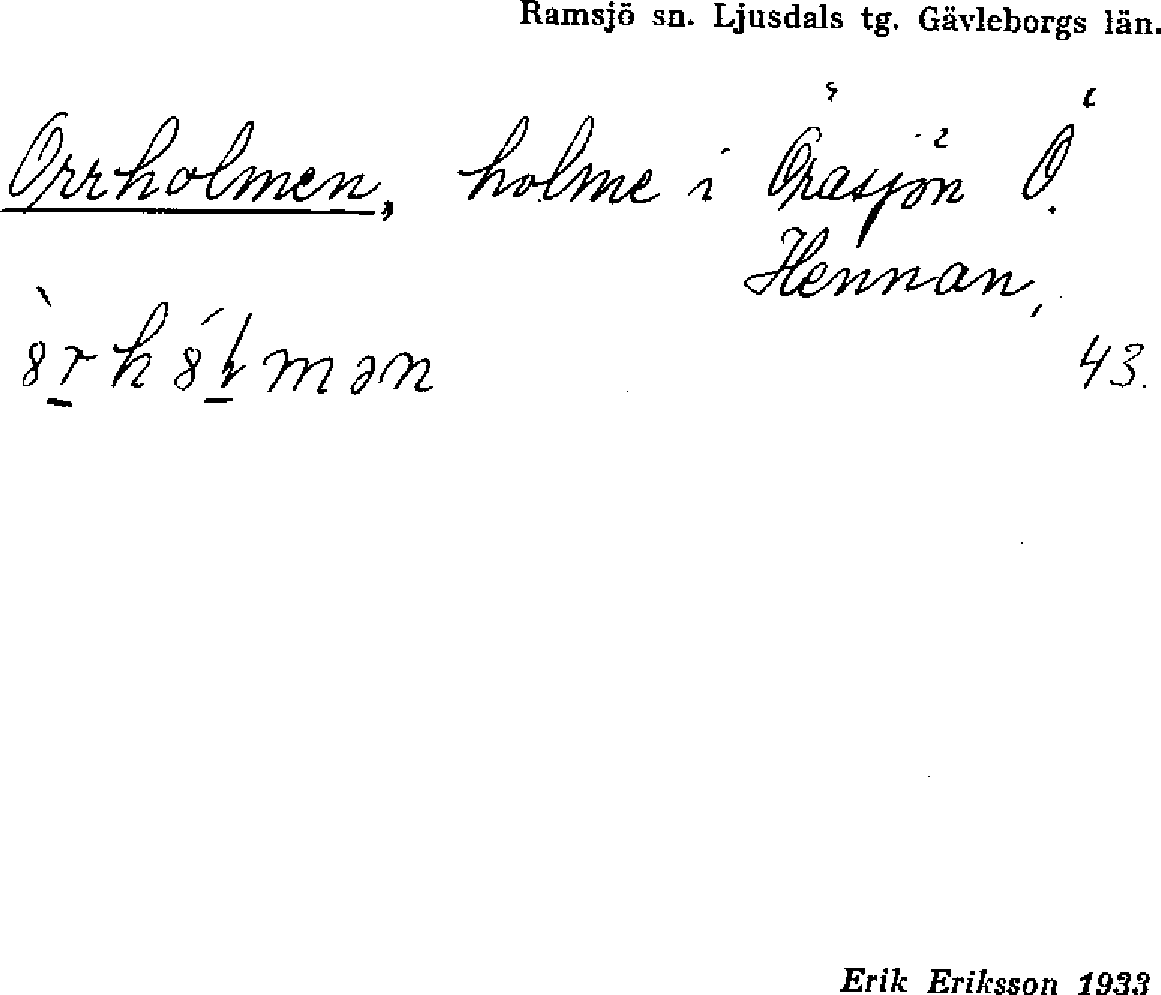 Ramsjö sn. Ljusdals tg. Gävleborgs län.
Orrholmen, holme i Öräsjön Ö.
Hennan,
43.
Erik Eriksson 1933